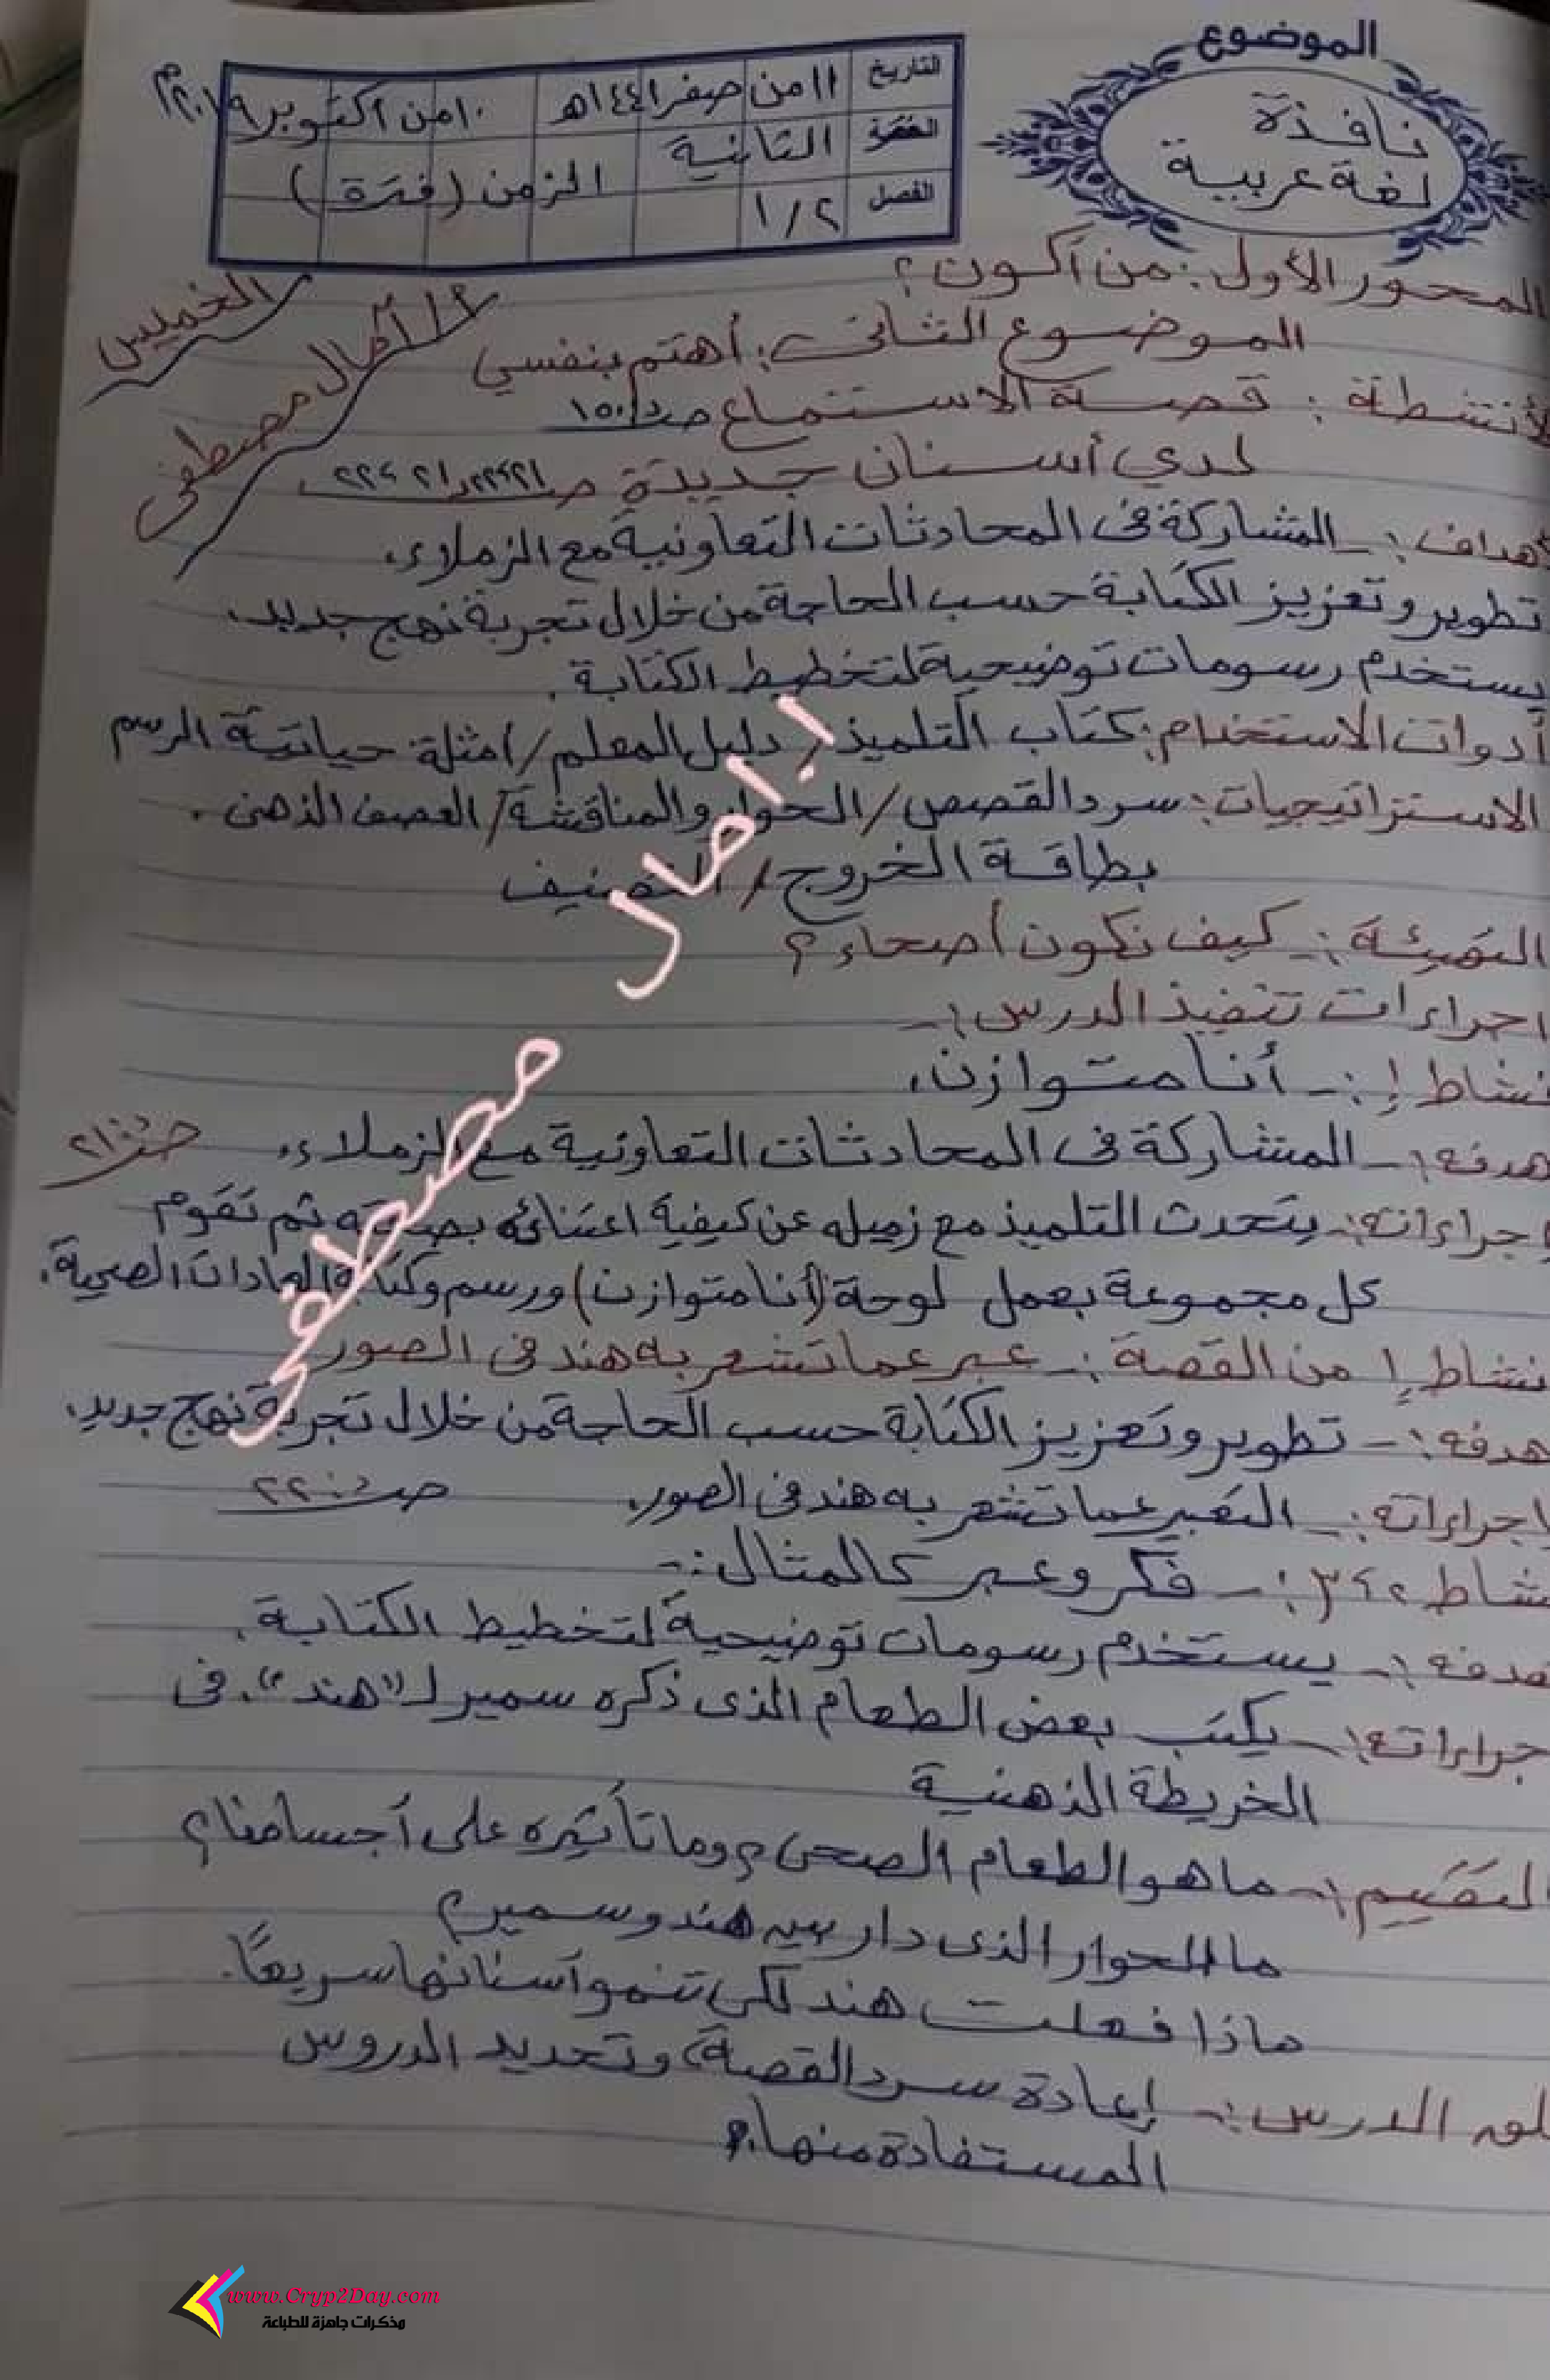 الموضوع
نافذة
لغة عربية
التاريخ ١١ من صفر ١٤٤١هـ ١٠ من أكتوبر ٢٠١٩م
الفترة الثانية الزمن (فترة)
الفصل ١/٢
المحور الأول: من أكون؟
الخميس
الموضوع الثاني: أهتم بنفسي
أ/ آمال مصطفى
لأنشطة: قصة الاستماع صـ ١٥٠
لدي أسنان جديدة صـ
هداف:- المشاركة فى المحادثات التعاونية مع الزملاء.
تطوير وتعزيز الكتابة حسب الحاجة من خلال تجربة نهج جديد.
يستخدم رسومات توضيحية لتخطيط الكتابة.
أدوات الاستخدام: كتاب التلميذ/ دليل المعلم/ امثلة حياتية الرسم
الاستراتيجيات: سرد القصص/ الحوار والمناقشة/ العصف الذهنى.
بطاقة الخروج/ التصنيف
التهيئة:- كيف نكون أصحاء؟
اجراءات تنفيذ الدرس:-
نشاط ١:- أنا متوازن.
هدفه:- المشاركة فى المحادثات التعاونية مع الزملاء. صـ ٢١
إجراءاته:- يتحدث التلميذ مع زميله عن كيفية اعتنائه بصحته ثم تقوم
كل مجموعة بعمل لوحة (أنا متوازن) ورسم وكتابة العادات الصحية.
نشاط ١ من القصة:- عبر عما تشعر به هند فى الصور
هدفه:- تطوير وتعزيز الكتابة حسب الحاجة من خلال تجربة نهج جديد.
اجراءاته:- التعبير عما تشعر به هند فى الصور. صـ ٢٢
شاط ٢، ٣:- فكر وعبر كالمثال:-
هدفه:- يستخدم رسومات توضيحية لتخطيط الكتابة.
جراءاته:- يكتب بعض الطعام الذى ذكره سمير لـ "هند". فى
الخريطة الذهنية
التقييم:- ما هو الطعام الصحى؟ وما تأثيره على أجسامنا؟
ما الحوار الذى دار بين هند وسمير؟
ماذا فعلت هند لكى تنمو أسنانها سريعًا.
لق الدرس:- إعادة سرد القصة، وتحديد الدروس
المستفادة منها.
آمال مصطفى
www.Cryp2Day.com
مذكرات جاهزة للطباعة